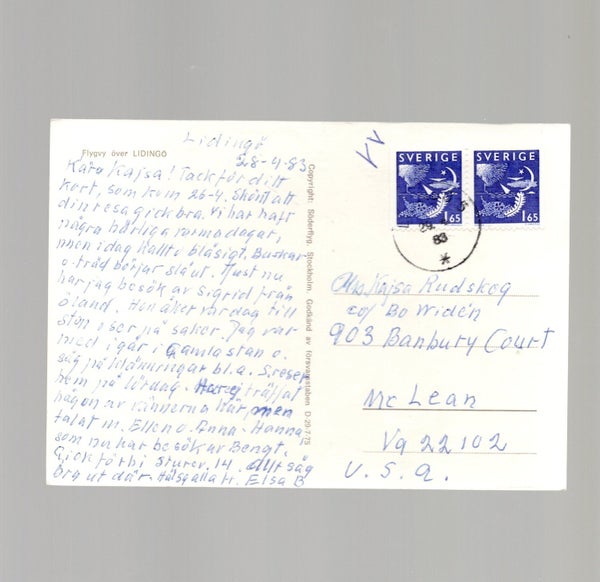 Flygvy över LIDINGÖ
Lidingö
28-4-83
Kära Kajsa! Tack för ditt
kort, som kom 26-4. Skönt att
din resa gick bra. Vi har haft
några härliga varma dagar,
men idag kallt o blåsigt. Buskar
o. träd börjar slå ut. Just nu
har jag besök av Sigrid från
Öland. Hon åker var dag till
stan o ser på saker. Jag var
med i går i Gamla stan o.
såg på klänningar bl.a. S. reser
hem på lördag. Har ej träffat
någon av vännerna här, men
talat m. Ellen o. Anna-Hanna
som nu har besök av Bengt.
Gick förbi Sturev. 14. Allt såg
bra ut där. Hälsa alla fr. Elsa B
Copyright: Söderflyg. Stockholm. Godkänd av försvarsstaben. D 29-7-75
SVERIGE
165
SVERIGE
165
83
Kajsa Rudskog
c/o Bo Widén
903 Banbury Court
Mc Lean
Va 22102
U.S.a.